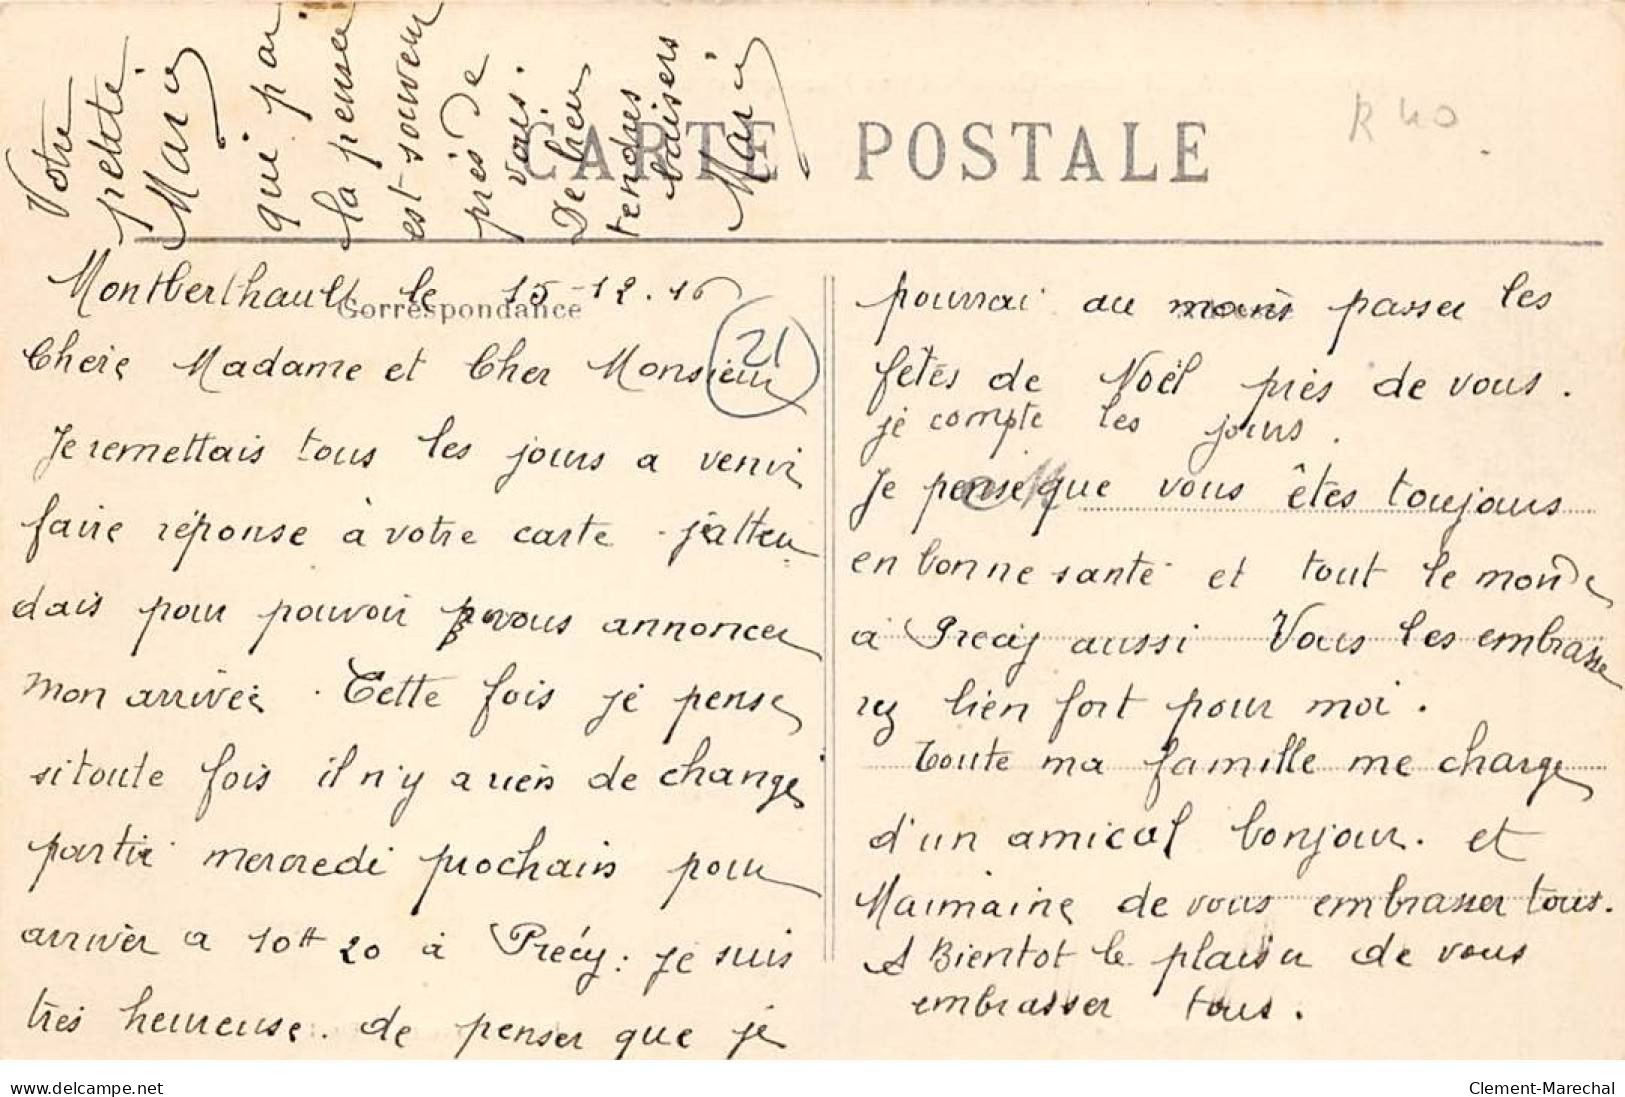 CARTE POSTALE
R 40
Correspondance
21
Montberthault le 15-12.16
Chère Madame et Cher Monsieur
Je remettais tous les jours a venir
faire réponse à votre carte. j'atten
dais pour pouvoir vous annoncer
mon arrivée. Cette fois je pense
si toute fois il n'y a rien de changé
partir mercredi prochain pour
arriver a 10H 20 à Précy: je suis
très heureuse. de penser que je
pourrai au moins passer les
fêtes de Noël près de vous.
je compte les jours.
Je pense que vous êtes toujours
en bonne santé et tout le monde
à Precy aussi Vous les embrasse
rez bien fort pour moi.
Toute ma famille me charge
d'un amical bonjour. et
Maimaine de vous embrasser tous.
A Bientot le plaisir de vous
embrasser tous.
Votre
petite
Marie
qui par
la pensée
est souvent
près de
vous.
De bien
tendres
baisers
Marie
www.delcampe.net
Clement-Marechal